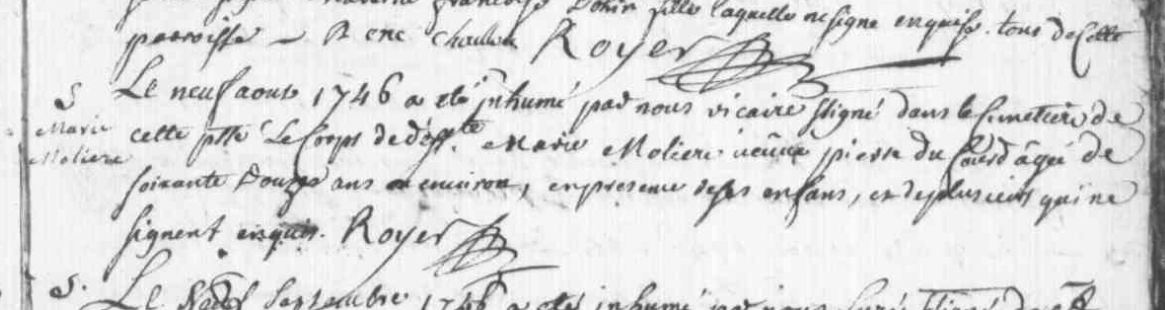 fille laquelle ne signe enquise. tous de cette
parroisse - Rene Royer
S Le neuf aout 1746 a eté inhumé par nous vicaire ssigné dans le Cimetiere de
Marie cette psse Le Corps de deffte Marie Moliere veuve pierre du âgée de
Moliere
soixante Douze ans ou environ, en presence de ses enfans, et de plusieurs qui ne
signent enquis. Royer
S. Le Septembre 1746 a eté inhumé par nous Curé ssigné